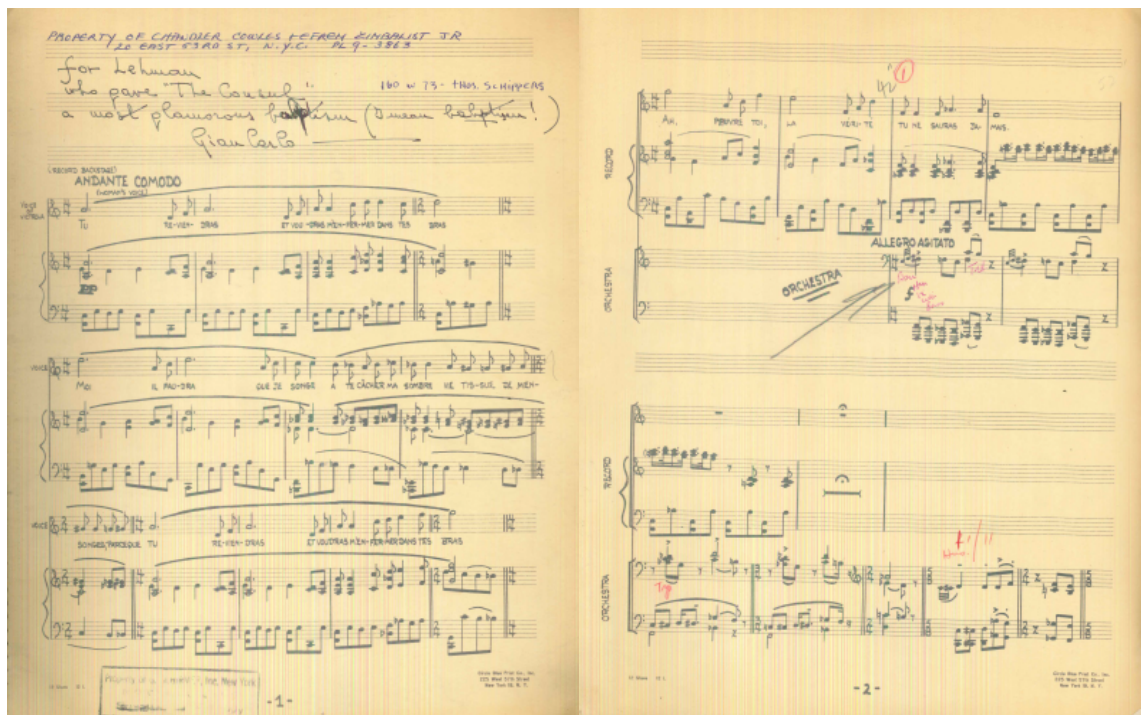 PROPERTY OF CHANDLER COWLES & EFREM ZIMBALIST JR
20 EAST 53RD ST, N.Y.C. PL 9-3863
for Lehman
who gave "The Consul"
160 W 73 - THOS. SCHIPPERS
a most glamorous baptism (I mean babptism!)
Gian Carlo
(RECORD BACKSTAGE)
ANDANTE COMODO
(WOMAN'S VOICE)
VOICE
TU RE-VIEN- DRAS ET VOU-DRAS M'EN-FER-MER DANS TES BRAS
PP
VOICE
MOI IL FAU-DRA QUE JE SONGE A TE CÂCHER MA SOMBRE VIE TIS-SUE DE MEN-
VOICE
SONGES, PARCEQUE TU RE-VIEN-DRAS ET VOUDRAS M'EN-FER-MER DANS TES BRAS
-1-
Circle Blue Print Co., Inc.
225 West 57th Street
New York 19, N. Y.
42
1
AH, PAUVRE TOI, LA VÉRI-TÉ TU NE SAURAS JA- MAIS.
RECORD
ALLEGRO AGITATO
ORCHESTRA
ORCHESTRA
RECORD
ORCHESTRA
Trp
12 Stave
-2-
Circle Blue Print Co., Inc.
225 West 57th Street
New York 19, N. Y.